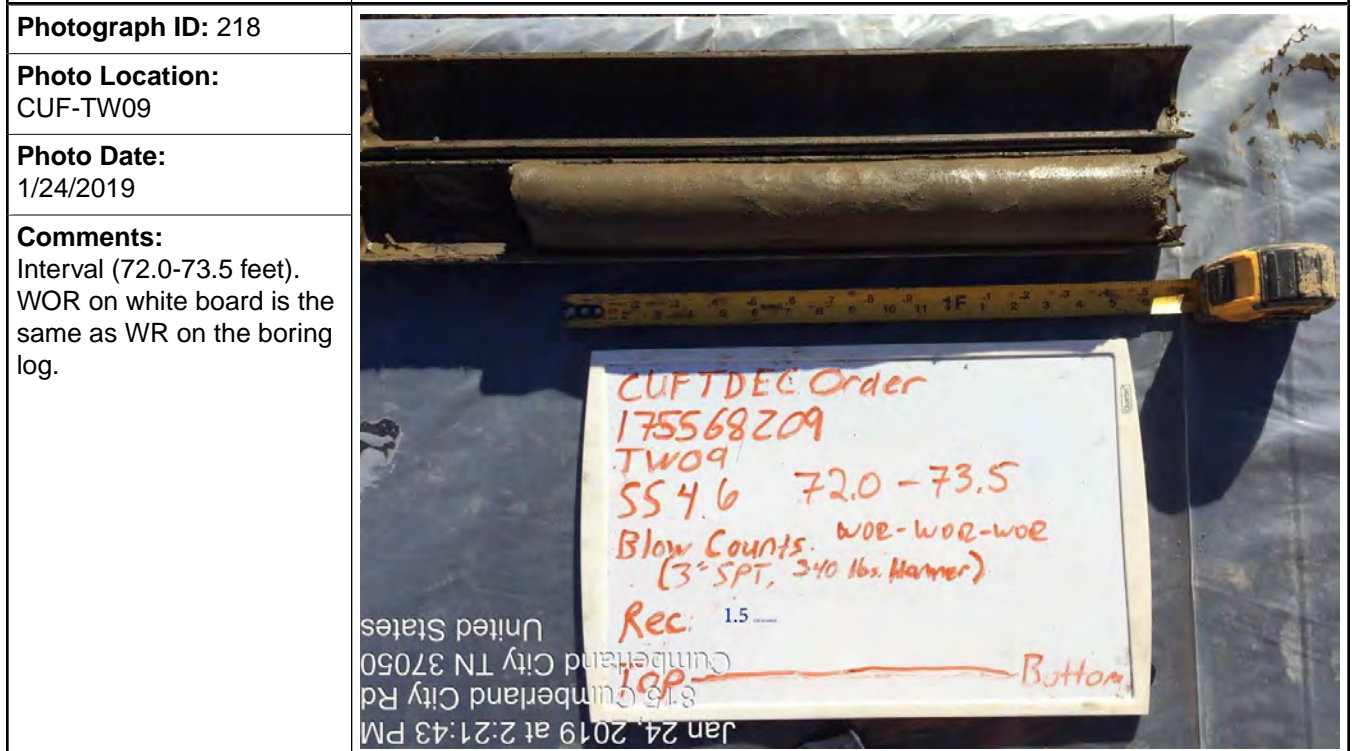 Photograph ID: 218
Photo Location:
CUF-TW09
Photo Date:
1/24/2019
Comments:
Interval (72.0-73.5 feet).
WOR on white board is the
same as WR on the boring
log.
1F
CUF TDEC Order
175568209
TW09
SS 4.6 72.0 - 73.5
Blow Counts. WOR-WOR-WOR
(3" SPT, 340 lbs. Hammer)
Rec: 1.5
TOP Bottom
Jan 24, 2019 at 2:21:43 PM
815 Cumberland City Rd
Cumberland City TN 37050
United States